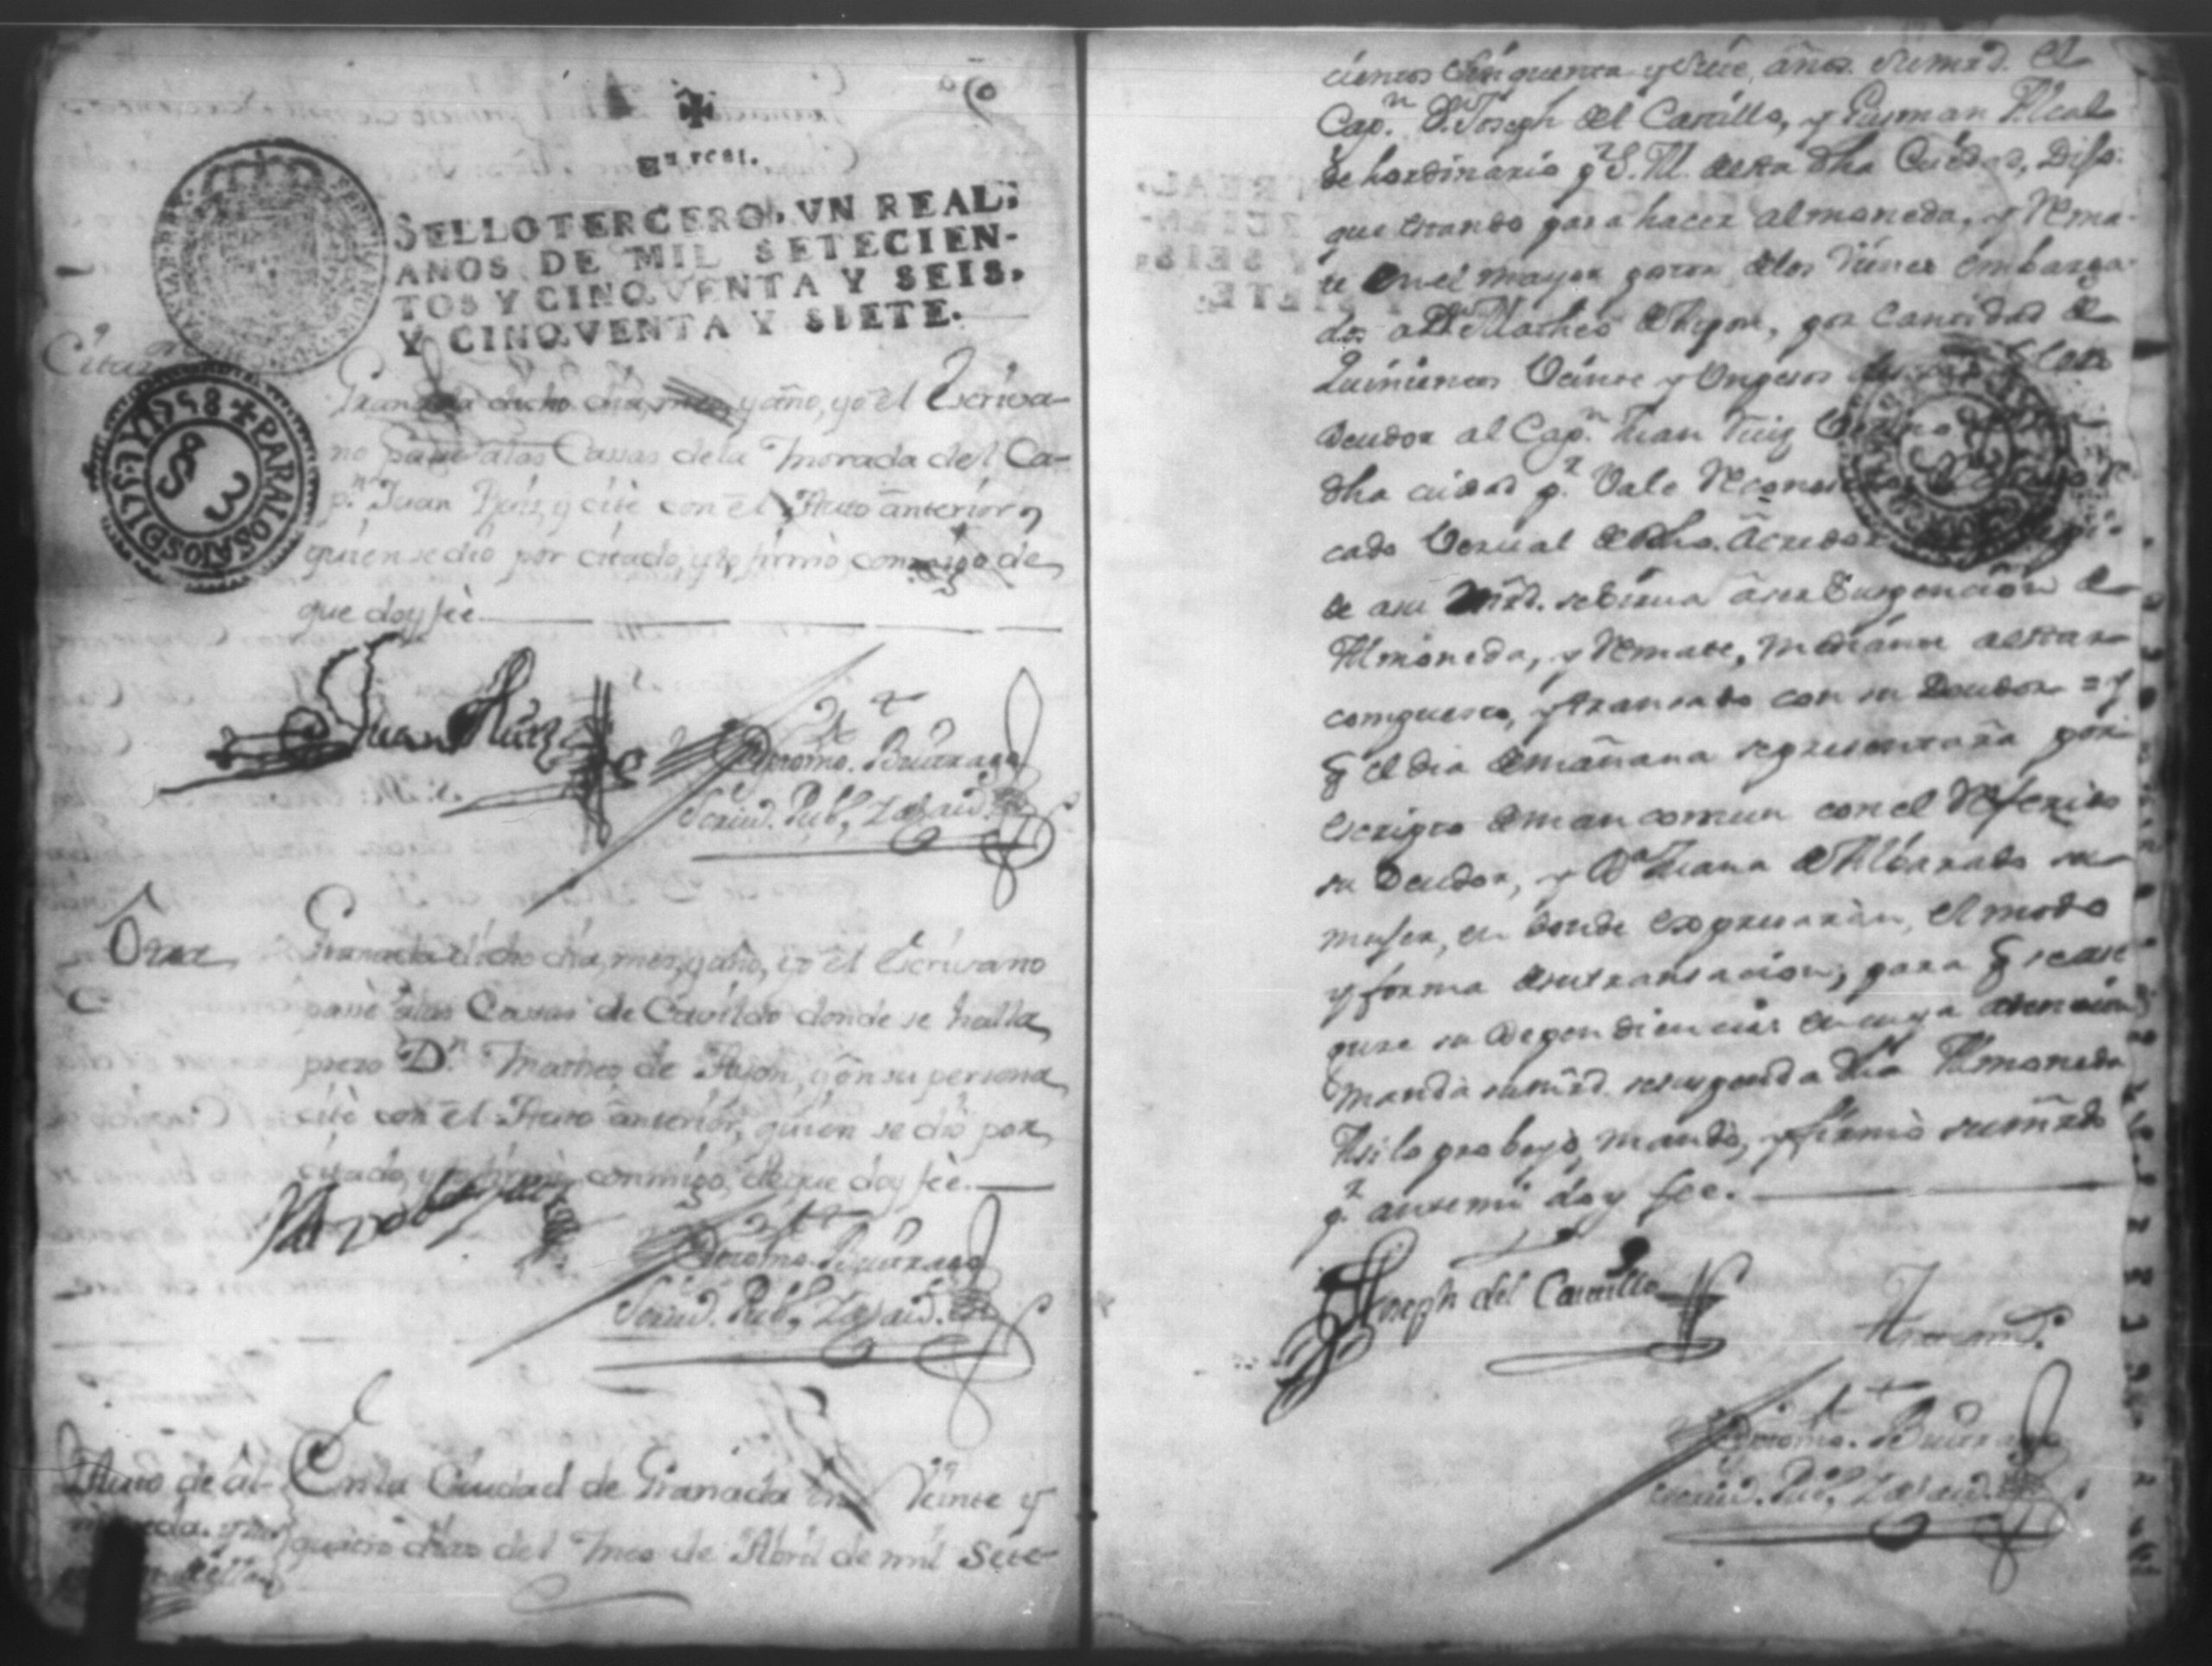 Un real.
SELLO TERCERO, VN REAL,
AÑOS DE MIL SETECIEN-
TOS Y CINQVENTA Y SEIS,
Y CINQVENTA Y SIETE.
PARA LOS AÑOS D 1757 Y 1758
Granada dicho dia, mes y año, yo el Escriva-
no passé a las Cassas de la Morada del Ca-
pn. Juan Ruiz y cité con el Auto anterior,
quien se dio por citado, y lo firmó conmigo de
que doy feè.
Juan Ruiz
Geromo. Buitrago
Scriuo. Pubo.
Otra
Granada dicho dia, mes, y año, yo el Escrivano
passé a las Cassas de Cavildo donde se halla
prezo Dn. Matheo de Ayon, y en su persona
cité con el Auto anterior, quien se dió por
citado, y lo firmó conmigo, de que doy feè.
Geromo. Buitrago
Scriuo. Pubo.
Auto de al-
moneda. y
En la Ciudad de Granada en Veinte y
quatro dias del Mes de Abril de mil Sete-
cientos Cinquenta y Siete, años. Sumrd. el
Capn. Dn. Joseph del Castillo, y Gusman Alcal
de hordinario pr. S. M. desta dha Ciudad, Dijo:
que estando para hacer almoneda, y Rema-
te en el mayor postor de los Vienes embarga-
dos a Dn. Matheo de Ayon, por Cantidad de
Quinientos Veinte y Un pesos
deudor al Capn. Juan Ruiz
dha ciudad pr. Vale Recono
cado Verual de dho. Acredor
te asu Mrd. se sirua aser Suspencion de
Almoneda, y Remate, mediante a estar
compuesto, y transado con su Deudor = y
q el dia de mañana representara por
escripto de man comun con el Referido
su Deudor, y Da. Juana de Albarado su
muger, en donde expresaràn, el modo
y forma de su transacion, para q se ase
gure su Dependiencia: en cuya atencion
Manda su mrd. se suspenda dha Almoneda
Asi lo probeyò, mandò, y firmò su mrd
pr. ante mi doy fee.
Joseph del Castillo
Ante mi.
Geromo. Buitrago
Scriuo. Pubo.